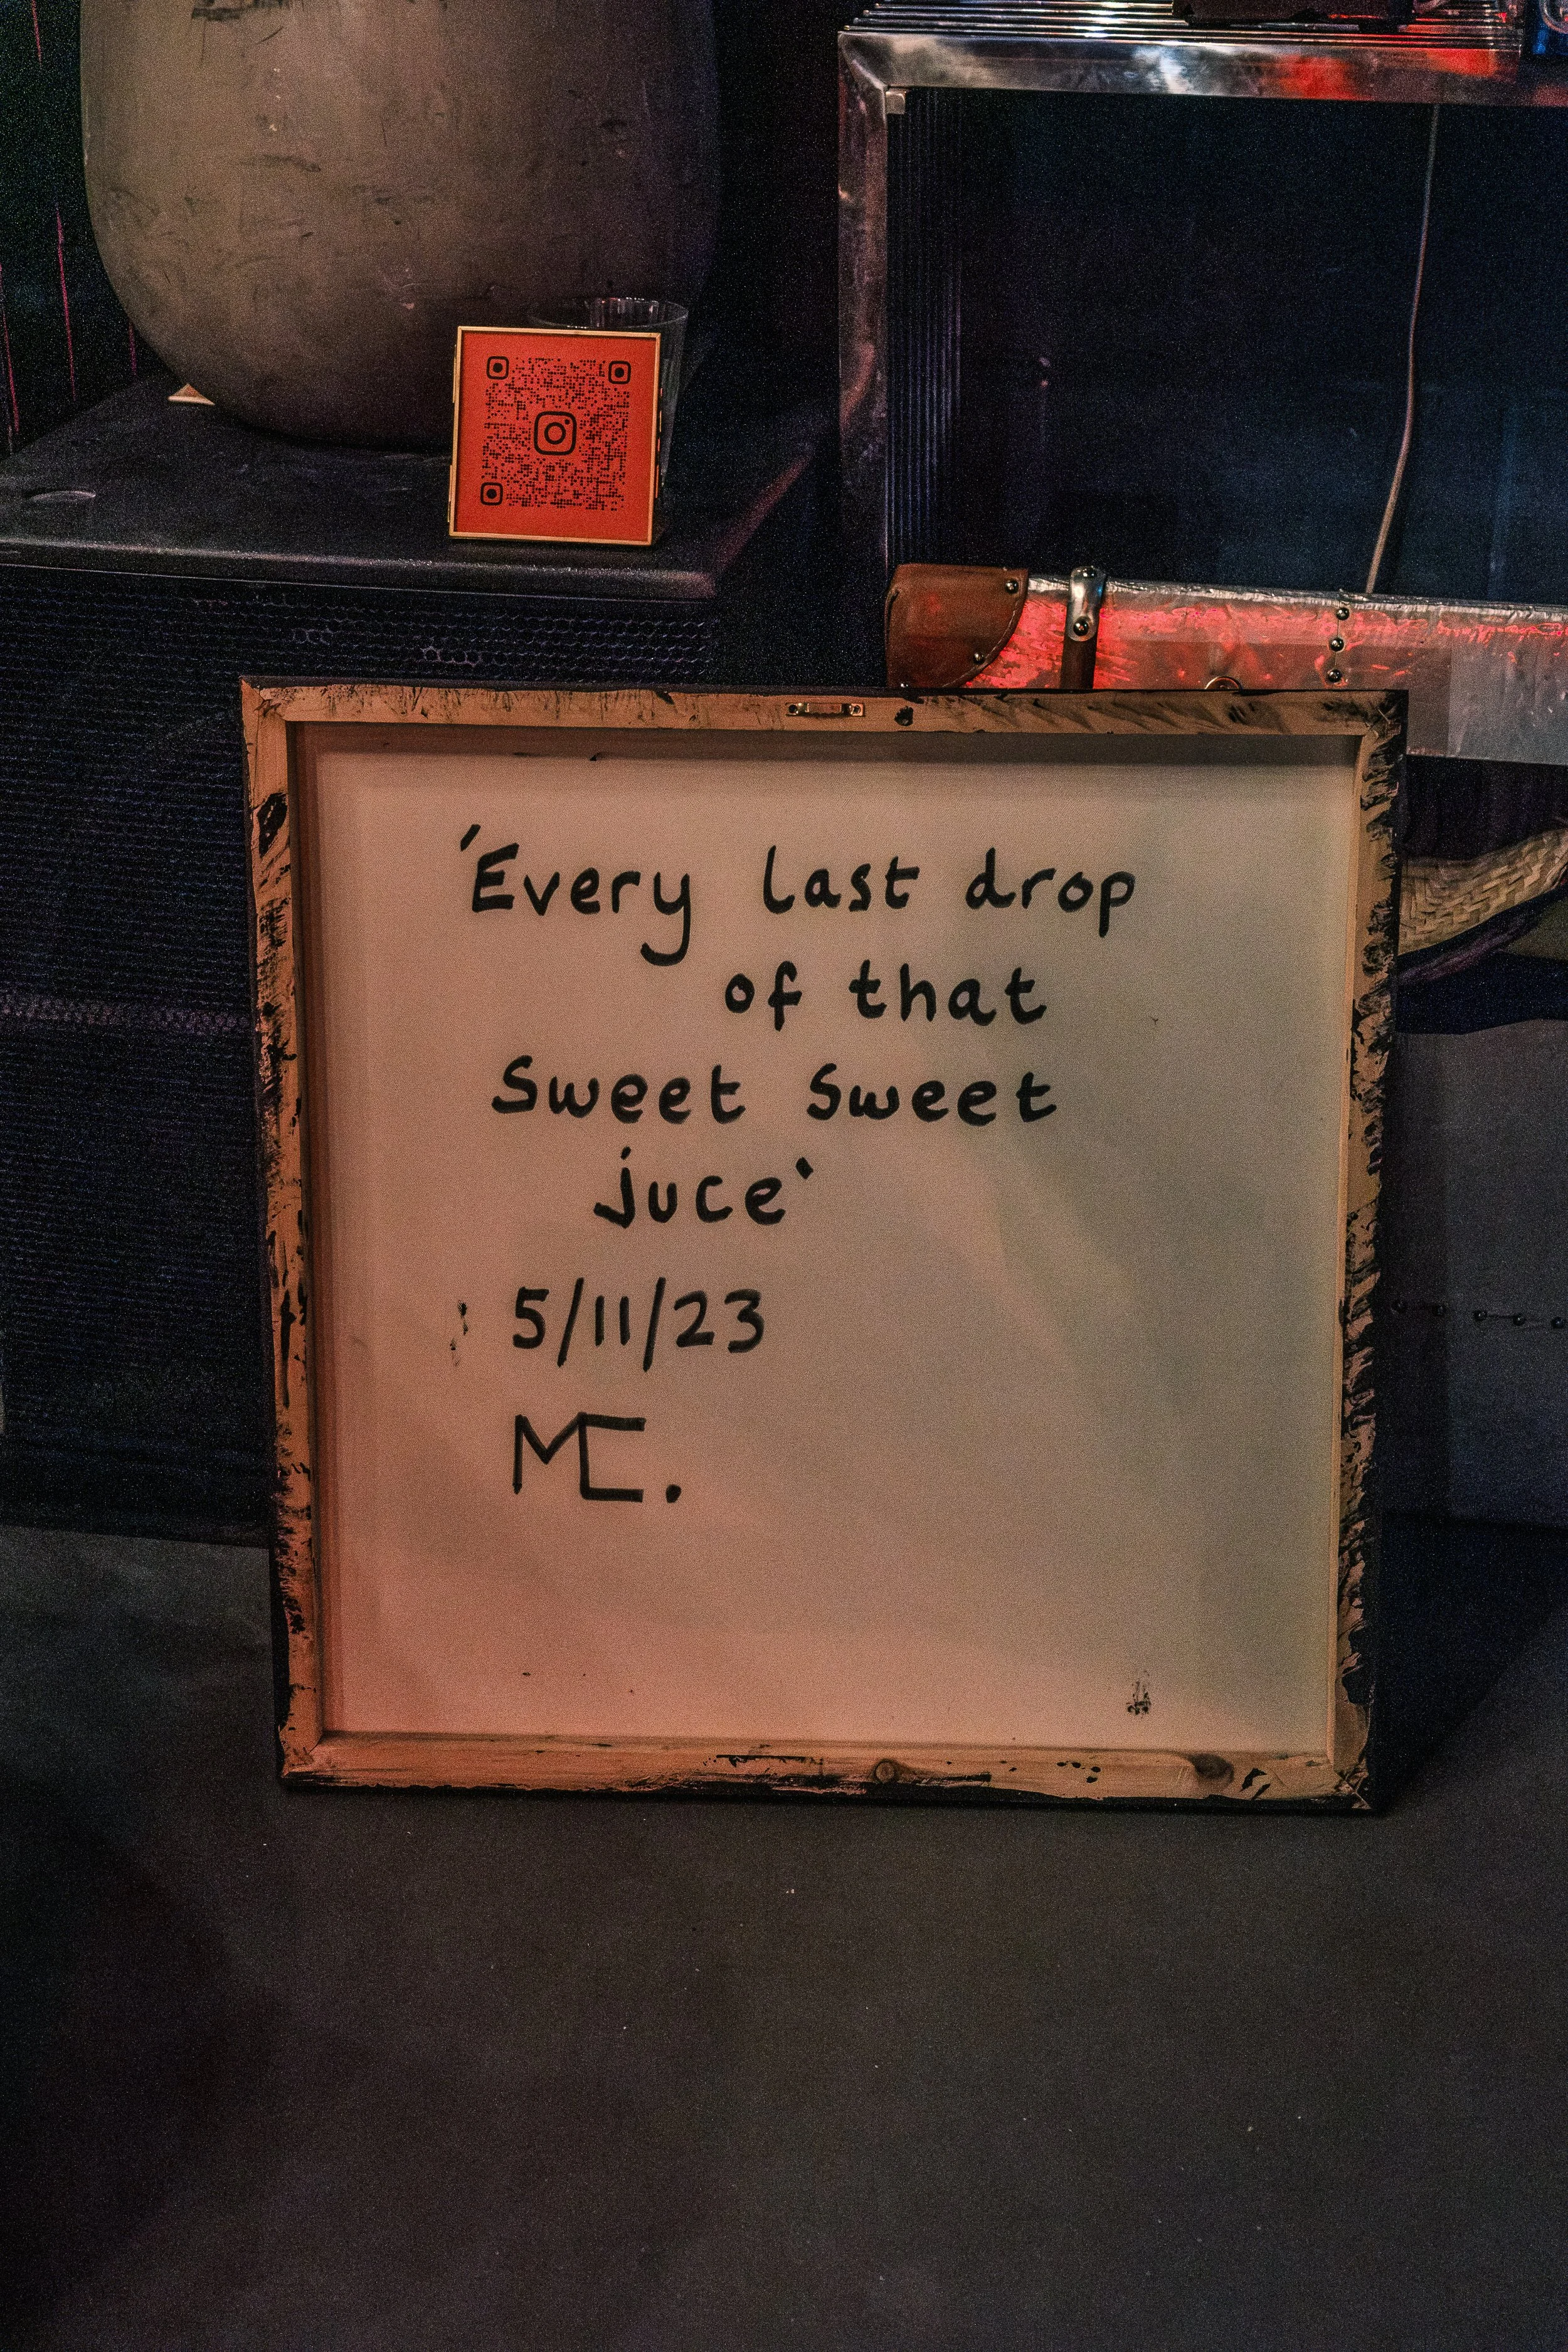 'Every last drop
of that
Sweet Sweet
juce'
5/11/23
MC.